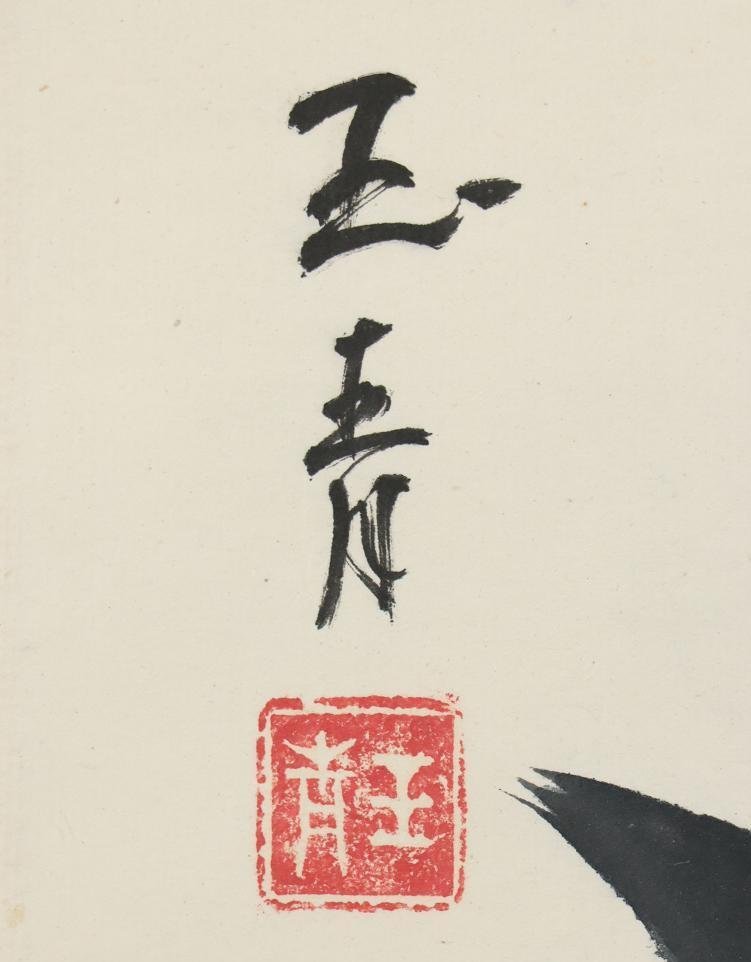 玉青
玉青